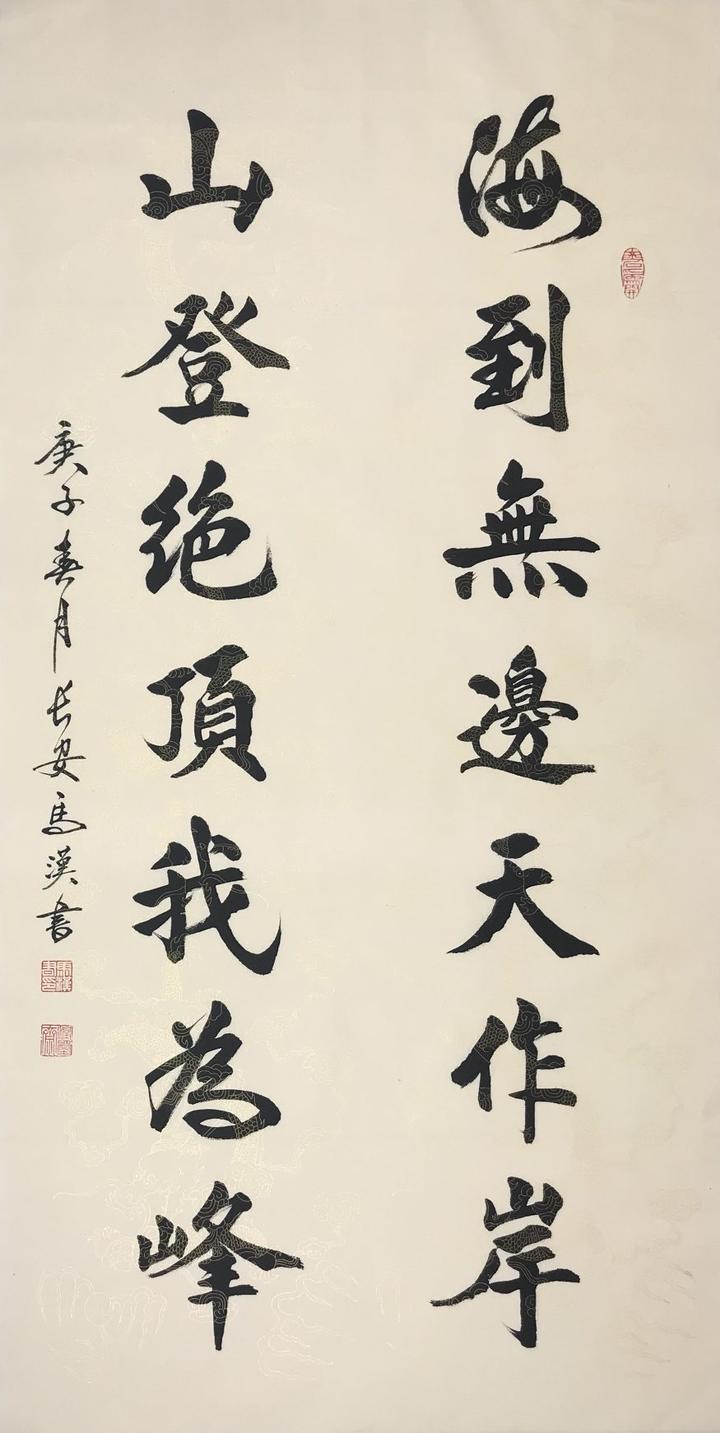 海到無邊天作岸
山登绝頂我為峰
庚子春月长安馬漢书